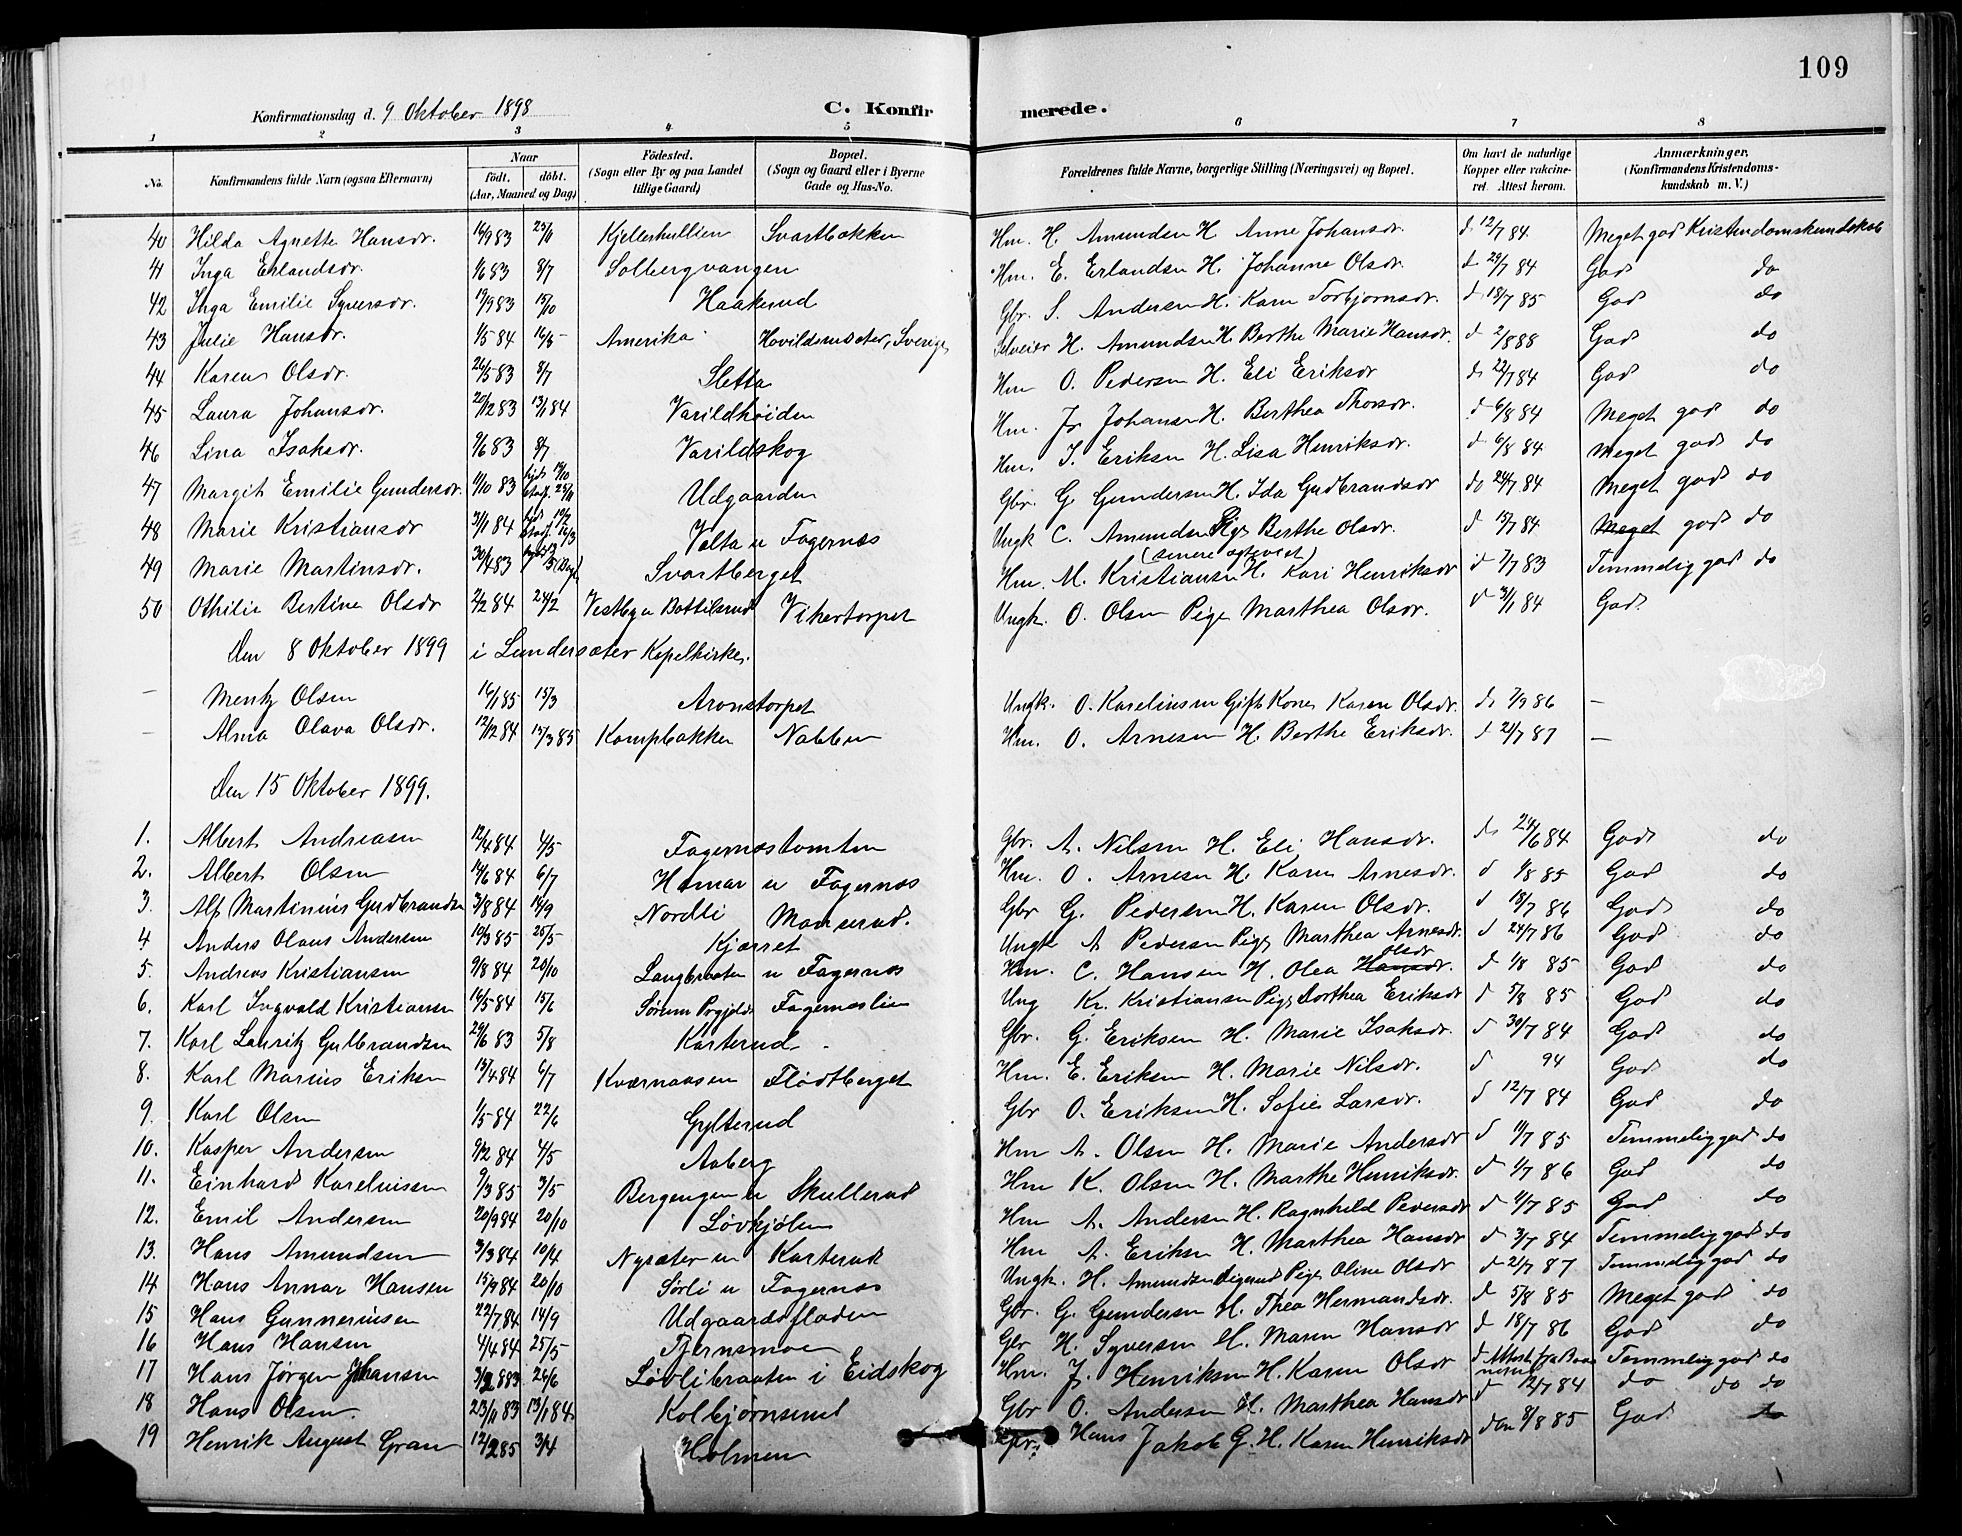 109
Konfirmationsdag d. 9 Oktober 1898 C. Konfirmerede.
1 2 3 4 5 6 7 8
No. Konfirmandens fulde Navn (ogsaa Efternavn) Naar födt. döbt. (Aar, Maaned og Dag) Födested. (Sogn eller By og paa Landet tillige Gaard) Bopæl. (Sogn og Gaard eller i Byerne Gade og Hus-No. Forældrenes fulde Navne, borgerlige Stilling (Næringsvei) og Bopæl. Om havt de naturlige Kopper eller vakcineret. Attest herom. Anmærkninger. (Konfirmandens Kristendomskundskab m. V.)
40 Hilda Agnette Hansdr. 16/9 83 25/11 Kjellerhullien Svartbakken Hm. H. Amundsen H. Anne Johansdr. d 12/7 84. Meget god Kristendomskundskab
41 Inga Erlandsdr. 1/6 83 8/7 Solbergvangen Hm. E. Erlandsen H. Johanne Olsdr. d 29/7 84 God do
42 Inga Emilie Syversdr. 19/9 83 15/10 Haakerud Gbr. S. Andersen H. Karen Torbjørnsdr. d 18/7 85 God do
43 Julie Hansdr. 1/5 84 16/5 Amerika Hovildsæter, Sverige, Selveier H. Amundsen H. Berthe Marie Hansdr. d 2/8 88 God do
44 Karen Olsdr. 26/5 83 8/7 Sletta Hm O. Pedersen H. Eli Eriksdr d 22/7 84 God do
45 Laura Johansdr. 20/12 83 13/1 84 Varildhöiden Hm. J. Johansen H. Berthea Thorsdr. d 6/8 84 Meget god do
46 Lina Isaksdr. 9/6 83 8/7 Varildskog Hm. I. Eriksen H. Lisa Henriksdr. d 6/8 84 Meget god do
47 Margit Emilie Gundersdr. 1/10 83 25/11 Udgaarden Gbr. G. Gundersen H. Ida Gudbrandsdr do 24/7 84 Meget god do
48 Marie Kristiansdr 3/1 84 16/3 Velta u Fagernæs Ungk C. Amundsen Pige Berthe Olsdr. d 15/7 84 Meget god do
49 Marie Martinsdr. 30/4 83 Svartberget Hm. M. Kristiansen H. Kari Henriksdr d 7/7 83 Temmelig god do
50 Othilie Bertine Olsdr 2/2 84 24/2 Vestbyn Bottilsrud Vikertorpet Ungk. O. Olsen Pige Marthea Olsdr. d 31/1 84 God
Den 8 Oktober 1899 i Lundersæter Kapelkirke.
– Mentz Olsen 16/1 85 15/3 Aronstorpet Ungk. O. Kareliussen Gift Kone Karen Olsdr. d 7/9 86 –
– Alma Olava Olsdr. 12/12 84 15/3 85 Kampbakken Nabben Hm. O. Arnesen H. Berthe Eriksdr. d 21/7 87 –
Den 15 Oktober 1899.
1. Albert Andreasen 12/4 84 4/5 Fagernæstomten Gbr. A. Nilsen H. Eli Hansdr. d 24/6 84 God do
2. Albert Olsen 14/6 84 6/7 Hamar u Fagernæs Hm. O. Arnesen H. Karen Arnesdr. d 1/8 85 God do
3. Alf Martinius Gudbrandsen 3/8 84 14/9 Nordli Monserud. Gbr G. Pedersen H. Karen Olsdr. d 18/7 86 God do
4 Anders Olaus Andersen 10/3 85 25/5 Kjærret Ungk A. Pedersen Pige Marthea Arnesdr. d 24/7 86 God do
5. Andreas Kristiansen 9/8 84 20/10 Langbraaten u Fagernæs Hm. C. Hansen H. Olea Olsdr d 1/8 85 God do
6. Karl Ingvald Kristiansen 16/5 84 15/6 Fagernæslien Ung Kr. Kristiansen Pige Dorthea Eriksdr d 5/8 85 God do
7. Karl Lauritz Gulbrandsen 29/6 83 5/8 Karterud Gbr. G. Eriksen H. Marie Isaksdr. d 30/7 84 God do
8. Karl Marius Eriksen 13/4 84 6/7 Kværnaasen Flödtberget Hm. E. Eriksen H. Marie Nilsdr. d 94 God do
9. Karl Olsen 1/5 84 22/6 Gylterud Gbr O. Eriksen H. Sofie Larsdr. d 12/7 84 God do
10. Kasper Andersen 9/2 84 4/5 Aaberg Hm A. Olsen H. Marie Andersdr d 11/7 85 Temmelig god do
11. Einhard Kareliussen 9/3 85 3/5 Bergengen u Skullerud Hm K. Olsen H. Marthe Henriksdr. d 1/7 86 God do
12. Emil Andersen 20/9 84 20/10 Løvhjølen Hm A. Andersen H. Ragnhild Pedersdr d 4/7 85 God do
13. Hans Amundsen 3/3 84 10/4 Nysæter u Karterud Hm A. Eriksen H. Marthea Hansdr d 3/7 84 Temmelig god do
14 Hans Annar Hansen 15/9 84 20/10 Sørli u Fagernæs Ungk. H. Amundsen Pige Oline Olsdr d 21/7 87 Temmelig god do
15 Hans Gunneriusen 22/7 84 14/9 Udgaardsfladen Gbr. G. Gundersen H. Thea Hermandsdr. d 5/8 85 Meget god do
16 Hans Hansen 4/4 84 25/5 Tjernsmoen Gbr H. Syversen H. Maren Hansdr d 18/7 86 God do
17 Hans Jørgen Johansen 3/2 83 26/6 Løvlibraaten i Eidskog Hm. J. Henriksen H. Karen Olsdr d Attest fra Temmelig god do
18 Hans Olsen. 23/11 83 13/1 84. Kolbjørnsrud Gbr O. Andersen H. Marthea Hansdr d 12/7 84 do do do
19 Henrik August Gran 12/2 85 3/4 Holmen Gbr. Hans Jakob G. H. Karen Henriksdr den 8/8 85 God do